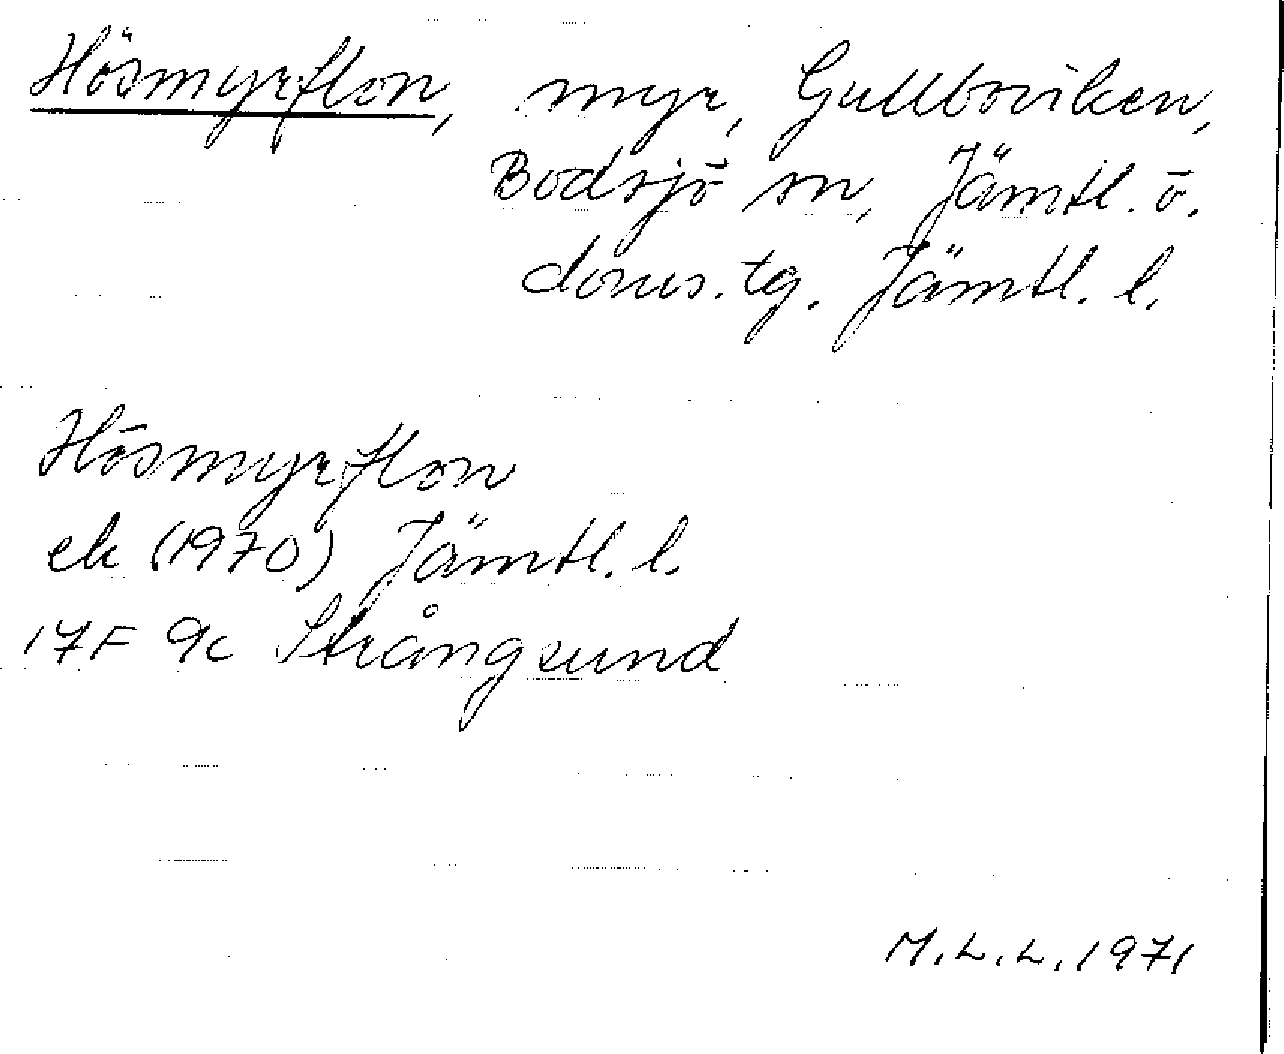 Hösmyrflon, myr, Gullboviken,
Bodsjö sn, Jämtl. ö.
doms. tg. Jämtl. l.
Hösmyrflon
ek (1970) Jämtl. l.
17F 9c Strångsund
M.L.L. 1971